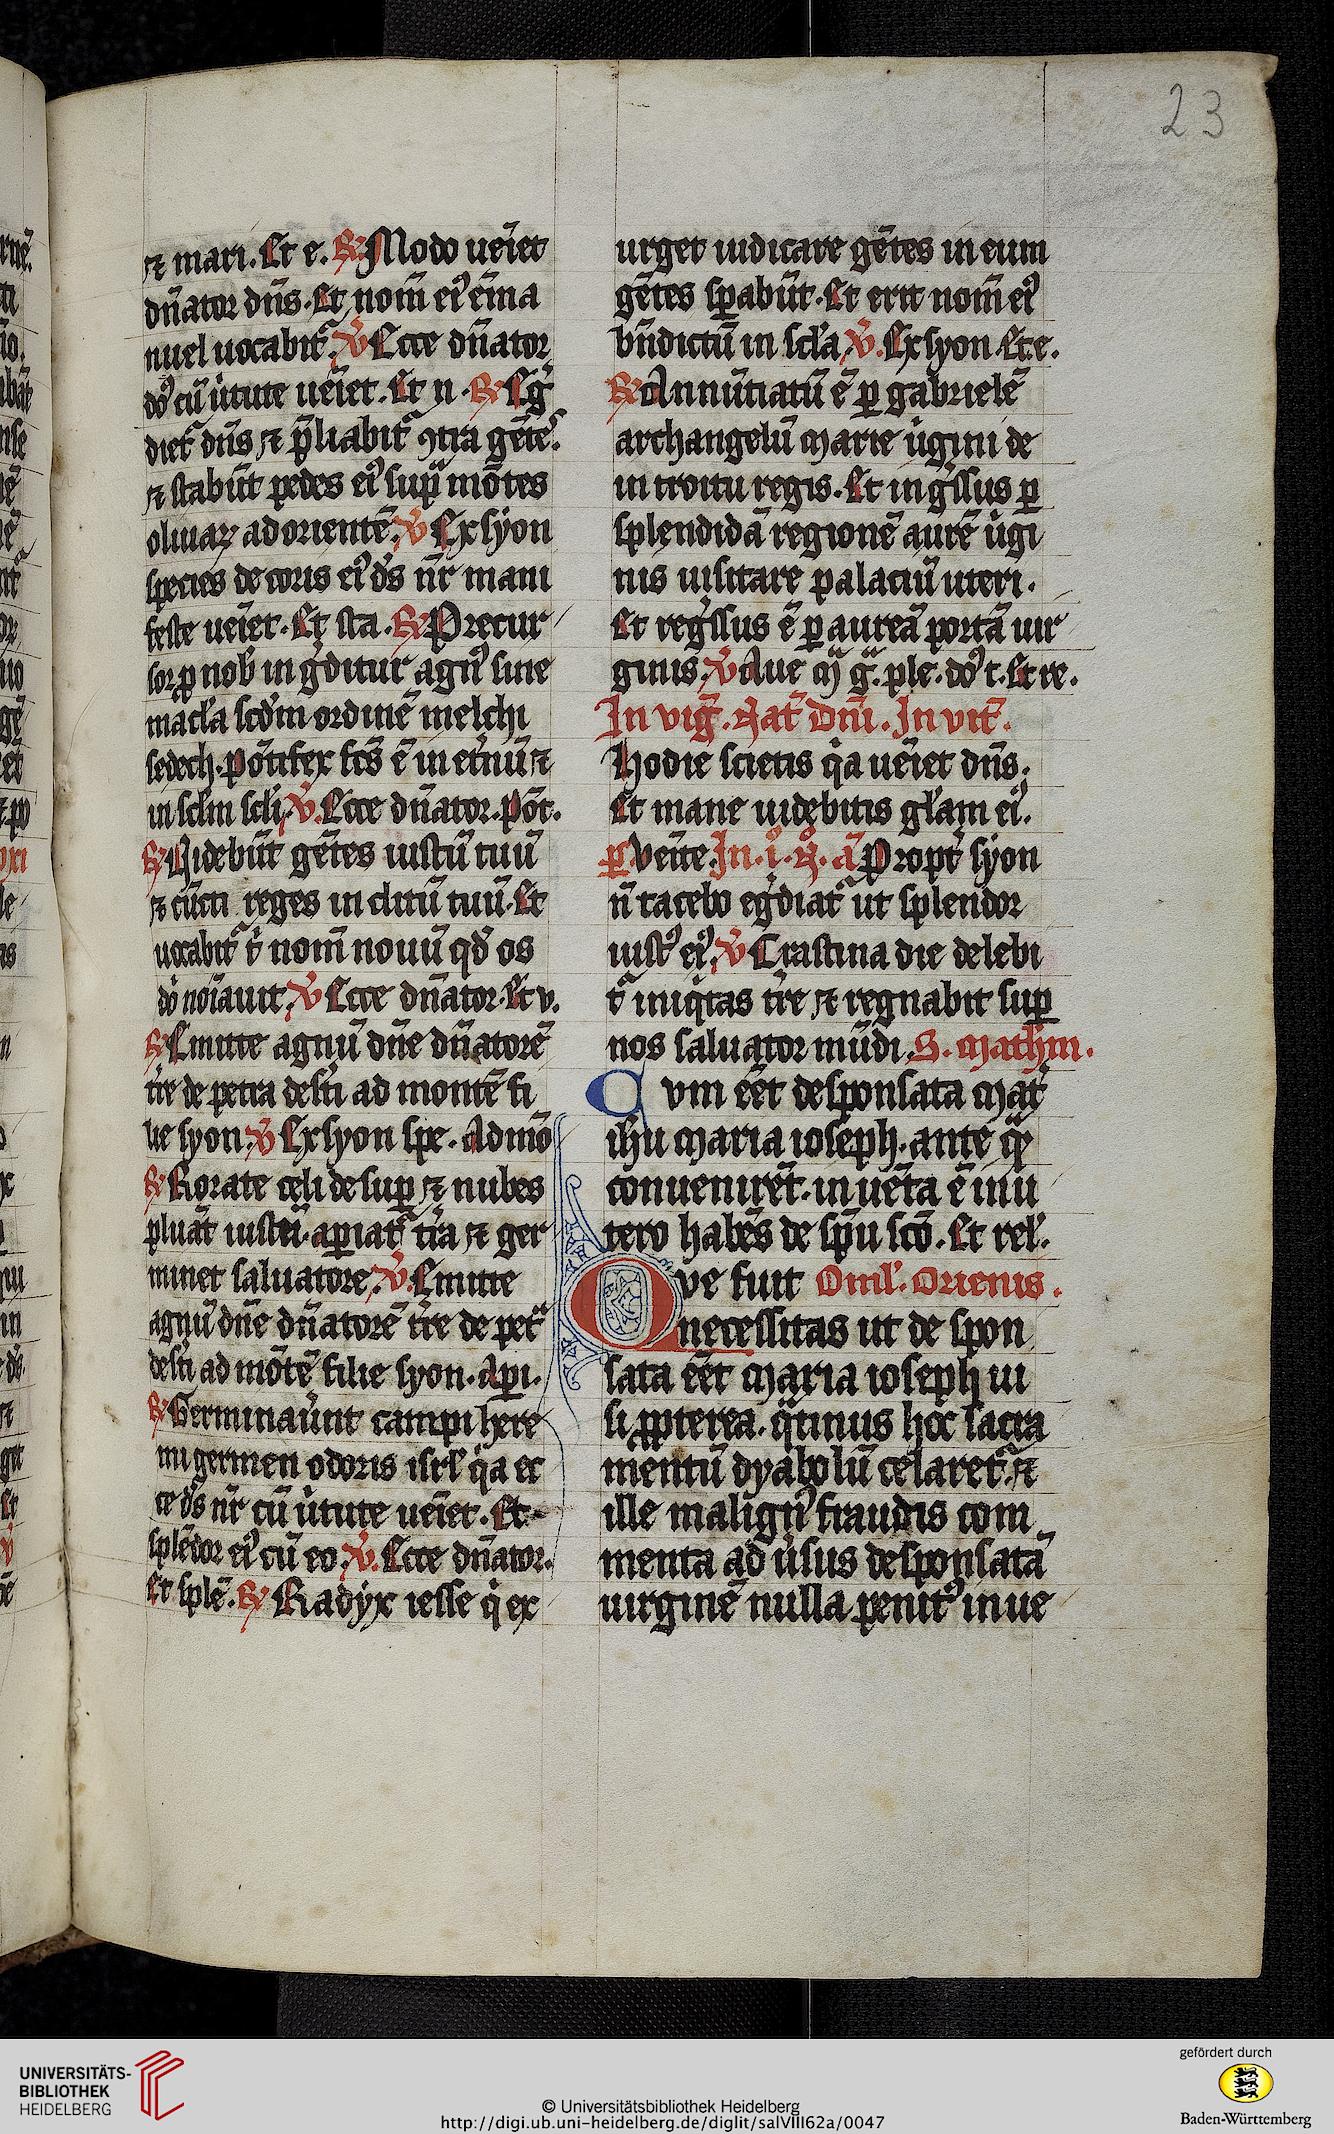 23
⁊ mari. Et e. ℟ Modo uēiet
dn̄ator dn̄s. Et nom̄ eiꝰ ēma
nuel uocabit᷑. ℣ Ecce dn̄ator
dōꝰ cū u̇tute uēiet. Et n. ℟ Eg̊
diet᷑ dn̄s ⁊ p̄liabit᷑ ꝯtra gēte᷒.
⁊ stabūt pedes eiꝰ supͣ mōtes
oliuaꝝ ad orientē. ℣ Ex syon
species decoris eiꝰ ds̄ nr̄ mani
feste uēiet. Et sta. ℟ Precur
sor ꝓ nob̄ ingͤditur agnꝰ sine
macl̄a scd̄m ordinē melchi
sedech. pōtifex fcs̄ ē in et̄nū ⁊
in scl̄m scl̄i. ℣. Ecce dn̄ator. pōt.
℟ Videbūt gētes iustū tuū
⁊ cūcti reges inclitū tuū. Et
uocabit᷑ t̄ nom̄ nouū qd̄ os
dn̄i noīauit. ℣ Ecce dn̄ator. Et v.
℟ Emitte agnū dn̄e dn̄atorē
tr̄e de petra deẜti ad montē fi
lie syon. ℣ Ex syon spe. Ad mō
℟ Rorate celi desuꝑ ⁊ nubes
pluāt iustū. aꝑiat᷑ tr̄a ⁊ ger
minet saluatorē. ℣. Emitte
agnū dn̄e dn̄atorē tr̄e de petͣ
deẜti ad mōtē filie syon. Aꝑi.
℟ Germinauer̄nt campi here
mi germen odoris isrl̄ qͥa ec
ce ds̄ nr̄ cū u̇tute uēiet. Et
splēdor eiꝰ cū eo. ℣. Ecce dn̄ator.
Et splē. ℟ Radyx iesse qͥ ex
urget iudicare gētes in eum
gētes sꝑabūt. Et erit nom̄ eiꝰ
bn̄dictū in scl̄a. ℣. Ex syon. Et e.
℟ Annūtiatū ē ꝑ gabrielē
archangelū marie u̇gini de
introitu regis. Et ingͤssus ꝑ
splendidā regionē aurē u̇gi
nis uisitare palaciū uteri.
Et regͤssus ē ꝑ aureā portā uir
ginis. ℣ Aue mͣ gͣ. ple. dōꝰ t. Et re.
In viḡ. Nat᷑ Dn̄i. Invit᷑.
Hodie scietis qͥa uēiet dn̄s.
Et mane uidebitis gl̄am eiꝰ.
p᷒. Venite. In. i. N̊. a᷑ Propt̄ syon
n̄ tacebo egͤdiat᷑ ut splendor
iustꝰ eiꝰ. ℣ Crastina die delebi
t᷑ iniqͥtas tr̄e ⁊ regnabit suꝑ
nos saluator mūdi. S. math̄m.
Cvm eēt desponsata mat̄
ih̄u maria ioseph. ante qͣꝫ
conuenirēt. inuēta ē inu
tero habēs de sp̄u scō. Et rel̄.
Que fuit Omel̄. Orienis.
necessitas ut de spon
sata eēt maria ioseph ui
ri ꝓpterea. qͣtinus hoc sacra
mentū dyabolū celaret᷑. ⁊
ille malignꝰ fraudis com
menta ad u̇sus desponsatā
uirginē nulla penitꝰ inue
UNIVERSITÄTS-
BIBLIOTHEK
HEIDELBERG
© Universitätsbibliothek Heidelberg
http://digi.ub.uni-heidelberg.de/diglit/salVIII62a/0047
gefördert durch
Baden-Württemberg